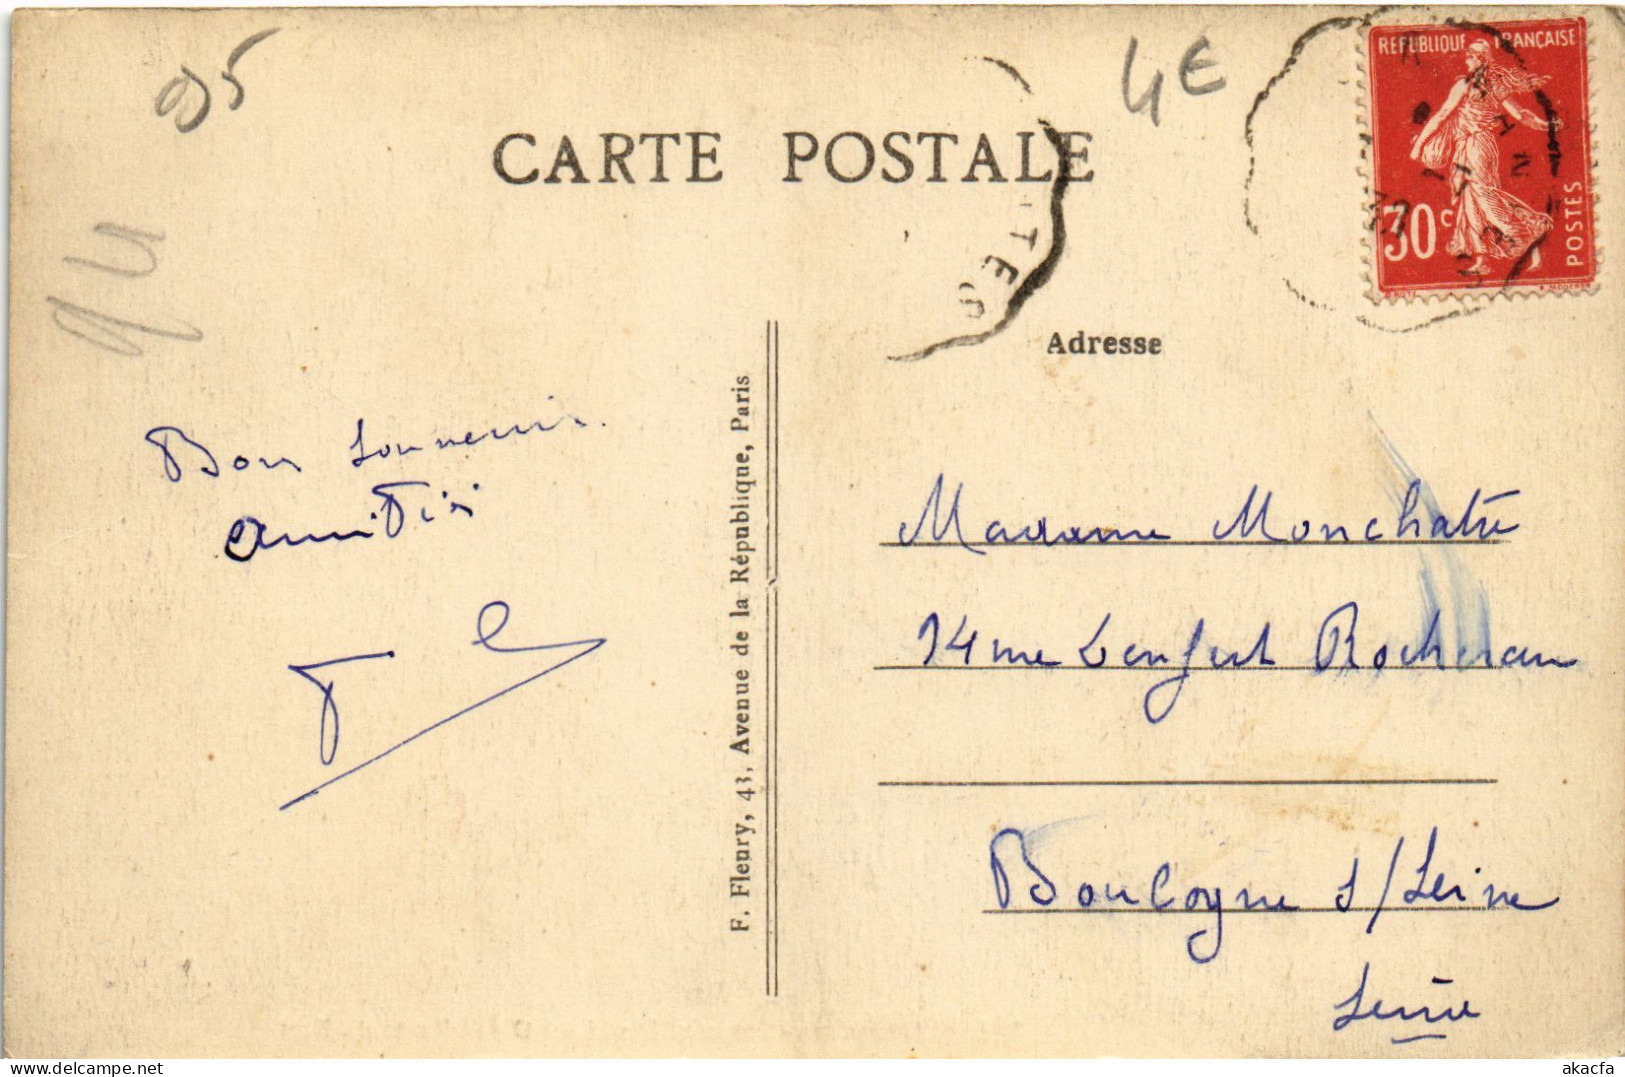 95
4E
94
CARTE POSTALE
REPUBLIQUE FRANÇAISE
30c
POSTES
TES
Adresse
F. Fleury, 43, Avenue de la République, Paris
Bon souvenir
amitiés
Madame Monchatre
14 rue Denfert Rochereau
Boulogne s/Seine
Seine
delcampe.net
akacfa